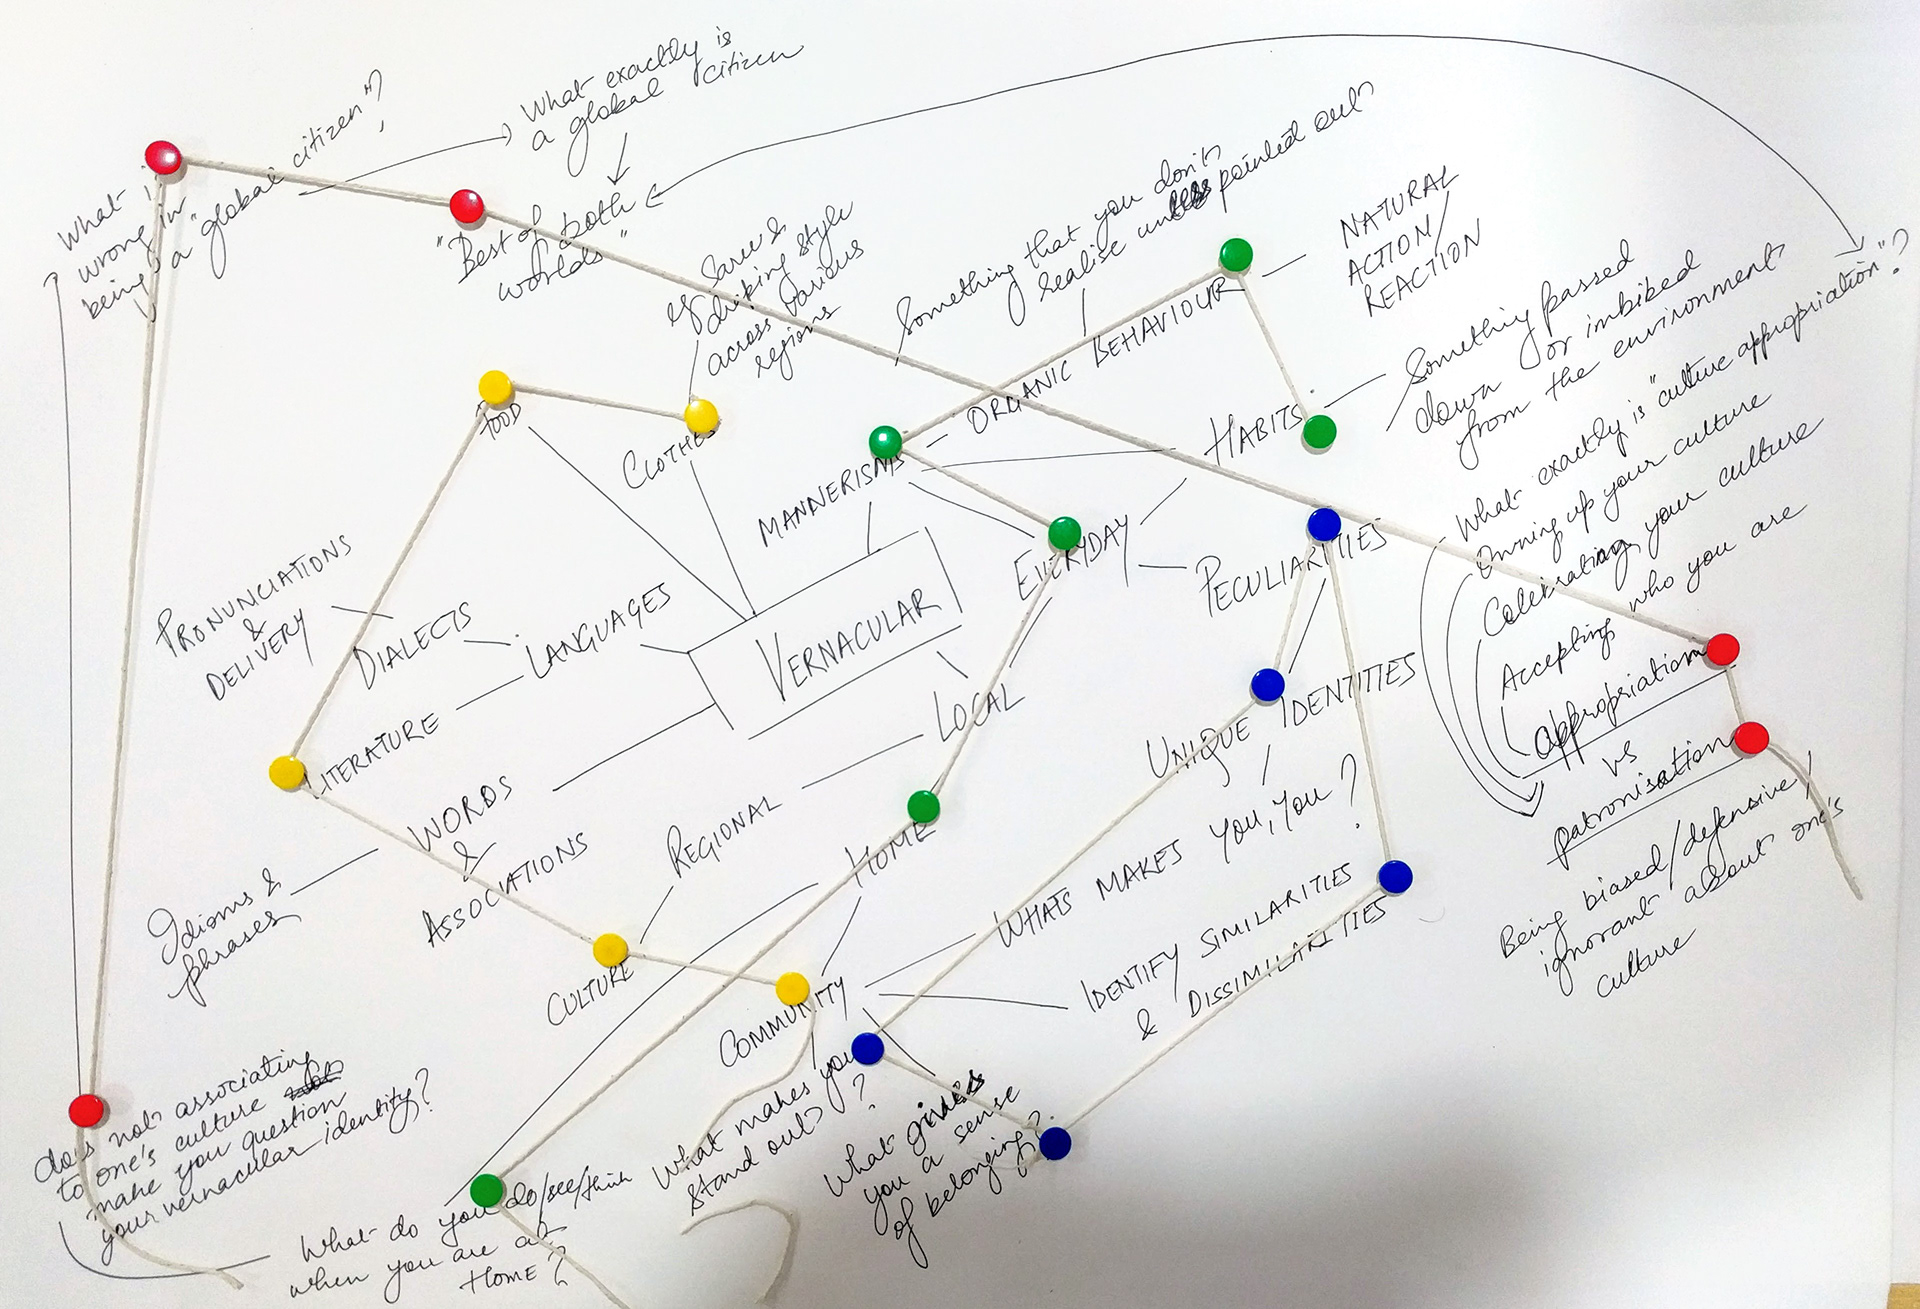 What is
wrong in
being a "global citizen"?
What exactly is
a global citizen
"Best of both
worlds"
eg. Saree &
draping style
across various
regions
Something that you don't
realise unless pointed out
NATURAL
ACTION/
REACTION
ORGANIC BEHAVIOUR
HABITS
Something passed
down or imbibed
from the environment
FOOD
CLOTHES
MANNERISMS
EVERYDAY
PECULIARITIES
What exactly is "culture appropriation"?
Owning up your culture
Celebrating your culture
Accepting who you are
appropriation
vs
patronisation
Being biased/defensive/
ignorant about one's
culture
PRONUNCIATIONS
&
DELIVERY
DIALECTS
LANGUAGES
VERNACULAR
LITERATURE
LOCAL
UNIQUE IDENTITIES
WORDS
&
ASSOCIATIONS
Idioms &
phrases
REGIONAL
HOME
CULTURE
COMMUNITY
WHATS MAKES YOU, YOU?
IDENTIFY SIMILARITIES
& DISSIMILARITIES
What makes you
stand out?
What gives
you a sense
of belonging?
does not associating
to one's culture
make you question
your vernacular identity?
What do you do/see/think
when you are at
HOME?